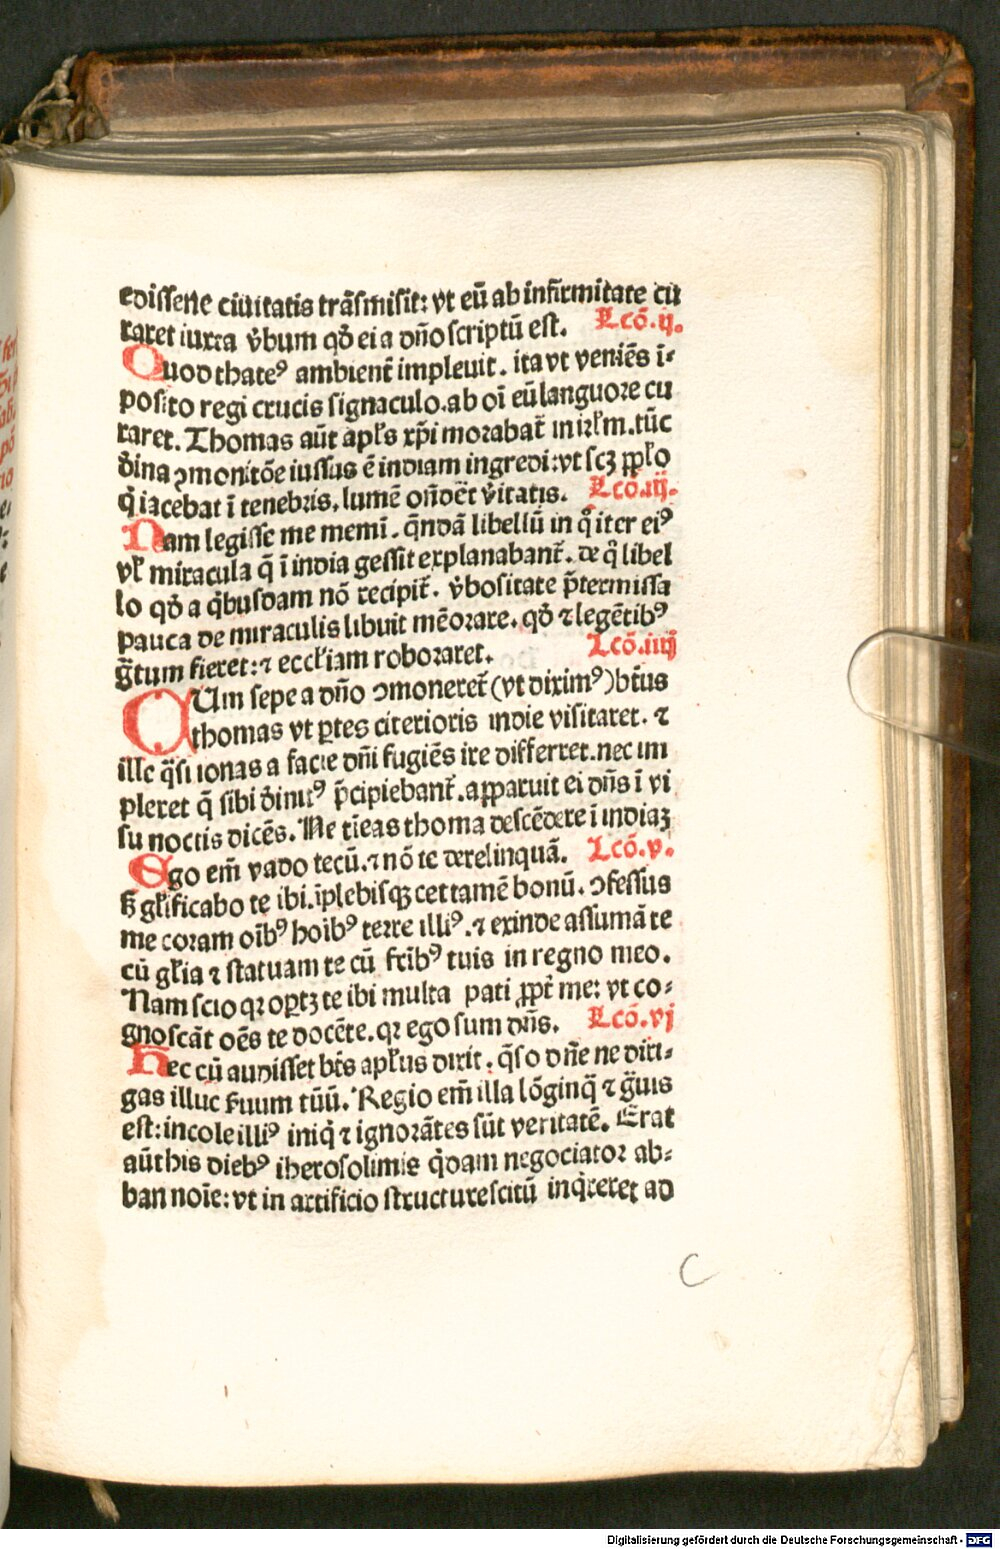 edissene ciuitatis trãsmisit: vt eũ ab infirmitate cu
raret iuxta v̾bum qđ ei a dño scriptũ est. Lcõ.ij.
Quod thateꝰ ambient̃ impleuit. ita vt veniẽs i-
posito regi crucis signaculo.ab oi eũ languore cu
raret. Thomas aũt apl̃s xp̃i morabat̃ in irl̃m.tũc
diuina ꝯmonitõe iussus ẽ indiam ingredi:vt scꝫ pplo
q̇ iacebat ĩ tenebris.lumẽ oñdẽt v̾itatis. Lcõ.iij.
Nam legisse me memĩ. q̃ndã libellũ in qͦ iter eiꝰ
vl̃ miracula q̃ ĩ india gessit explanabant̃. de qͦ libel
lo qđ a q̇busdam nõ recipit̃. v̾bositate p̃termissa
pauca de miraculis libuit mẽorare. qđ ⁊ legẽtibꝰ
g̃tum fieret:⁊ eccl̃iam roboraret. Lcõ.iiij
CUm sepe a dño ꝯmoneret̃ (vt diximꝰ) bt̃us
thomas vt ꝑtes citerioris indie visitaret. ⁊
ille q̃si ionas a facie dñi fugiẽs ire differret.nec im
pleret q̃ sibi diuĩtꝰ p̃cipiebant̃.apparuit ei dñs ĩ vi
su noctis dicẽs. Ne tĩeas thoma descẽdere ĩ indiaꝫ
Ego em̃ vado tecũ.⁊ nõ te derelinquã. Lcõ.v.
sꝫ gl̃ificabo te ibi.ĩplebisqꝫ certamẽ bonũ. ꝯfessus
me coram oĩbꝰ hoĩbꝰ terre illiꝰ.⁊ exinde assumã te
cũ gl̃ia ⁊ statuam te cũ frĩbꝰ tuis in regno meo.
Nam scio qꝛ oꝑtꝫ te ibi multa pati ꝓpt̃ me: vt co-
gnoscãt oẽs te docẽte.qꝛ ego sum dñs. Lcõ.vj
Hec cũ audisset bt̃s apl̃us dixit. q̃so dñe ne diri-
gas illuc s̃uum tũũ. Regio em̃ illa lõginq̃ ⁊ g̃uis
est:incole illiꝰ iniq̇ ⁊ ignorãtes sũt veritatẽ. Erat
aũt his diebꝰ iherosolimis q̇dam negociator ab-
ban noĩe: vt in artificio structure scitũ inq̇reret ad
C
Digitalisierung gefördert durch die Deutsche Forschungsgemeinschaft - DFG